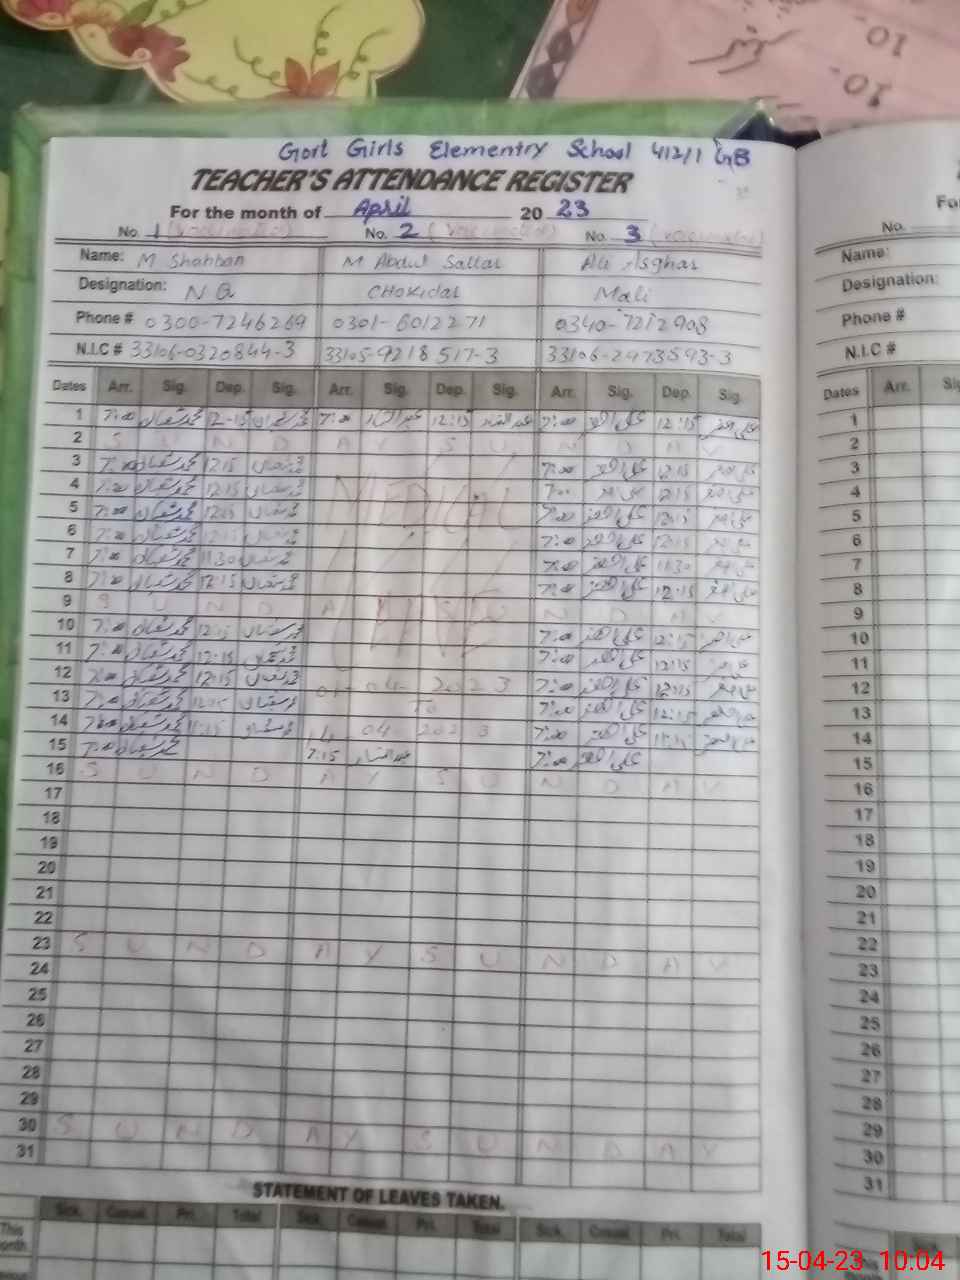 Gort Girls Elementry School 412/1 GB
TEACHER'S ATTENDANCE REGISTER
For the month of April 20 23
No. 1 No. 2 No. 3
Name: M Shahban M Abdul Sattar Ali Asghar
Designation: N Q CHOKIDAR Mali
Phone # 0300-7246269 0301-6012271 0340-7212908
N.I.C # 33106-0320844-3 33105-9218517-3 33106-2973593-3
Dates Arr. Sig. Dep. Sig. Arr. Sig. Dep. Sig. Arr. Sig. Dep. Sig.
1 7:00 محمد شعبان 12-15 محمد شعبان 7:00 عبدالستار 12:15 عبدالستار 7:00 علی اصغر 12:15 علی اصغر
2 S U N D A Y S U N D A Y
3 7:00 محمد شعبان 12:15 محمد شعبان 7:00 علی اصغر 12:15 علی اصغر
4 7:00 محمد شعبان 12:15 محمد شعبان MEDICAL 7:00 علی اصغر 12:15 علی اصغر
5 7:00 محمد شعبان 12:15 محمد شعبان 7:00 علی اصغر 12:15 علی اصغر
6 7:00 محمد شعبان 12:15 محمد شعبان 7:00 علی اصغر 12:15 علی اصغر
7 7:00 محمد شعبان 11:30 محمد شعبان 7:00 علی اصغر 11:30 علی اصغر
8 7:00 محمد شعبان 12:15 محمد شعبان 7:00 علی اصغر 12:15 علی اصغر
9 S U N D A Y S U N D A Y
10 7:00 محمد شعبان 12:15 محمد شعبان 7:00 علی اصغر 12:15 علی اصغر
11 7:00 محمد شعبان 12:15 محمد شعبان 7:00 علی اصغر 12:15 علی اصغر
12 7:00 محمد شعبان 12:15 محمد شعبان 01-04-2023 7:00 علی اصغر 12:15 علی اصغر
13 7:00 محمد شعبان 12:15 محمد شعبان To 7:00 علی اصغر 12:15 علی اصغر
14 7:00 محمد شعبان 11:15 محمد شعبان 14-04-2023 7:00 علی اصغر 11:15 علی اصغر
15 7:00 محمد شعبان 7:15 عبدالستار 7:00 علی اصغر
16 S U N D A Y S U N D A Y
17
18
19
20
21
22
23 S U N D A Y S U N D A Y
24
25
26
27
28
29
30 S U N D A Y S U N D A Y
31
STATEMENT OF LEAVES TAKEN.
Sick. Casual. Pri. Total Sick. Casual. Pri. Total Sick. Casual. Pri. Total
This
onth.
No.
Name:
Designation:
Phone #
N.I.C #
Dates Arr.
1
2
3
4
5
6
7
8
9
10
11
12
13
14
15
16
17
18
19
20
21
22
23
24
25
26
27
28
29
30
31
10
10
15-04-23 10:04